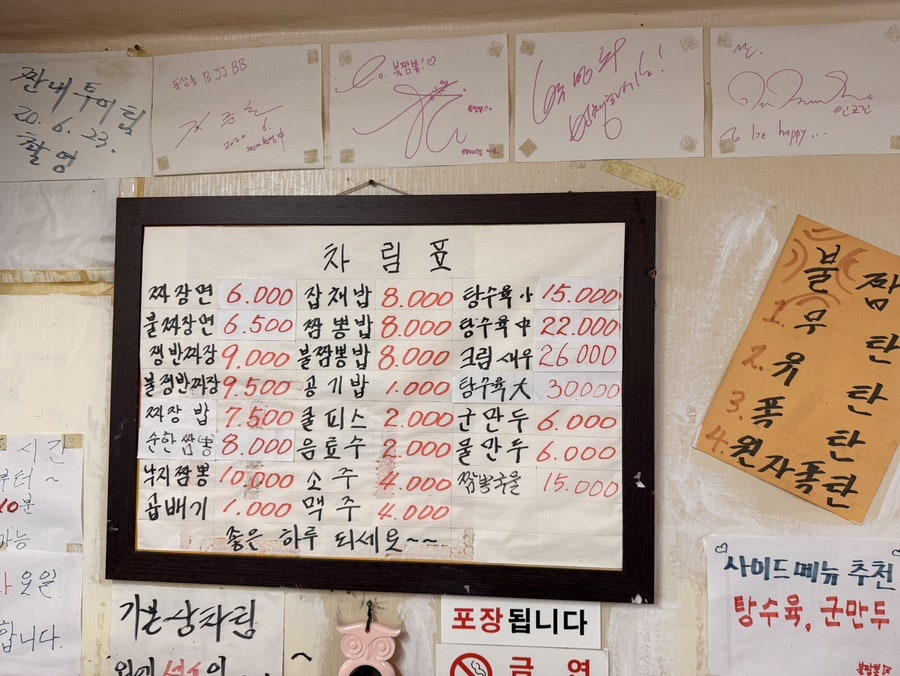 짠내투어팀
20. 6. 23.
촬영
동삼동 BJJ BB
2020. 6.
To. 북짬뽕!♡
인교진
to be happy...
차림표
짜장면 6.000 잡채밥 8.000 탕수육 小 15.000
불짜장면 6.500 짬뽕밥 8.000 탕수육 中 22.000
쟁반짜장 9.000 불짬뽕밥 8.000 크림새우 26.000
불쟁반짜장 9.500 공기밥 1.000 탕수육 大 30.000
짜장밥 7.500 쿨피스 2.000 군만두 6.000
순한짬뽕 8.000 음료수 2.000 물만두 6.000
낙지짬뽕 10.000 소주 4.000 짬뽕국물 15.000
곱배기 1.000 맥주 4.000
좋은 하루 되세요~~
불짬
1. 무 탄
2. 유 탄
3. 폭 탄
4. 원자폭탄
시간
부터 ~
10분
가능
요일
합니다.
기본상차림
외에
포장됩니다
금연
사이드메뉴 추천
탕수육, 군만두